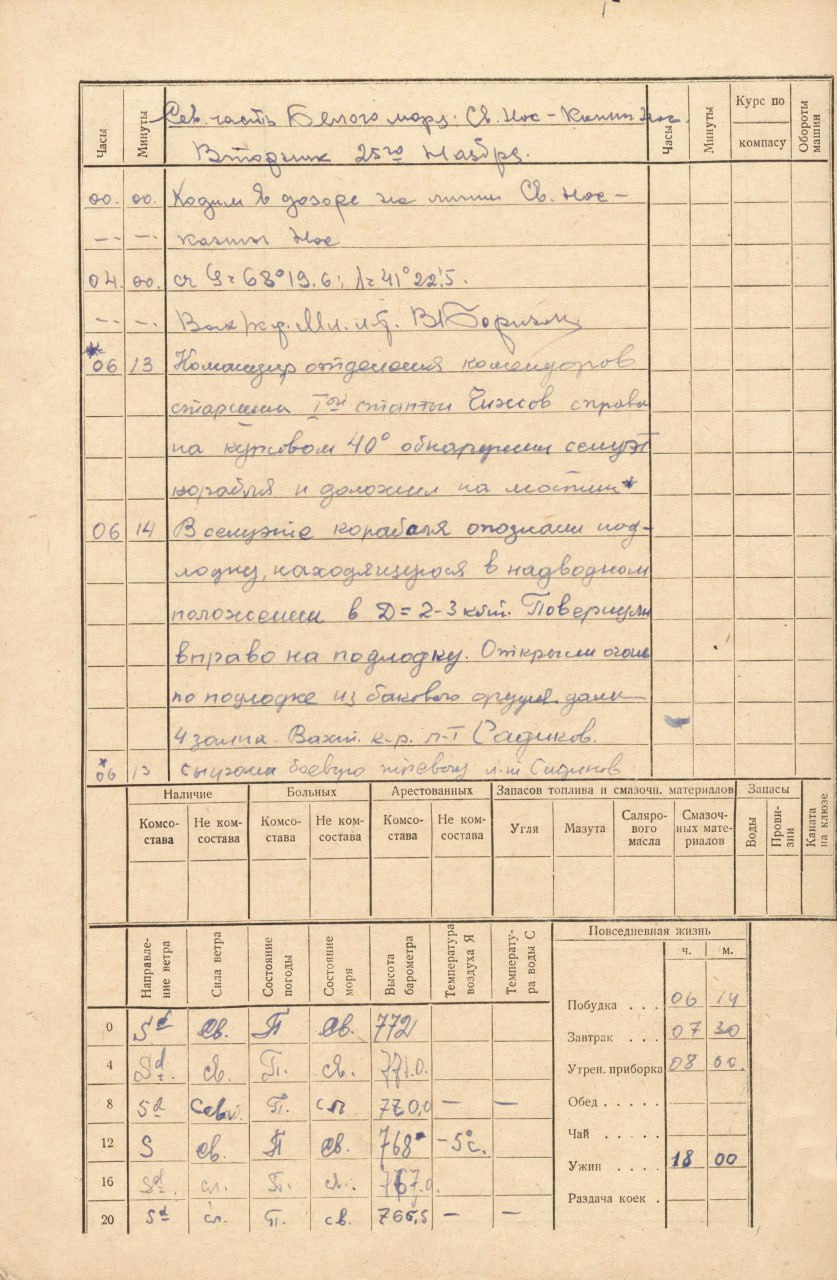 Часы Минуты Сев. часть Белого моря: Св. Нос – Канин Нос. Часы Минуты Курс по компасу Обороты машин
Вторник 25го Ноября.
00. 00. Ходим в дозоре на линии Св. Нос –
–– –. Канин Нос
04. 00. φ = 68°19.6; λ = 41°22'.5.
–– –.
*06 13 Командир отделения комендоров
старшина Iой статьи справа
на курсовом 40° обнаружил силуэт
корабля и доложил на мостик*
06 14 В силуэте корабля опознали под-
лодку, находящуюся в надводном
положении в Д = 2-3 кбт. Повернули
вправо на подлодку. Открыли огонь
по подлодке из бакового орудия дали
4 залпа. Вахт. к-р. л-т Садиков.
*06 13 сыграли боевую тревогу л-т Садиков
Наличие Больных Арестованных Запасов топлива и смазочн. материалов Запасы Каната на клюзе
Комсо-става Не ком-состава Комсо-става Не ком-состава Комсо-става Не ком-состава Угля Мазута Саляро-вого масла Смазоч-ных мате-риалов Воды Прови-зии
Направле-ние ветра Сила ветра Состояние погоды Состояние моря Высота барометра Температура воздуха Я Температу-ра воды С
0 Sd св. П св. 772
4 св. П. св. 771.0.
8 Sd П. сл 770,0 – –
12 S св. П св. 768 –5°с.
16 сл. П. 767.0.
20 Sd сл. П. св. 766,5 – –
Повседневная жизнь
ч. м.
Побудка . . . 06 14
Завтрак . . . 07 30
Утрен. приборка 08 00.
Обед . . . . .
Чай . . . . .
Ужин . . . . 18 00
Раздача коек .